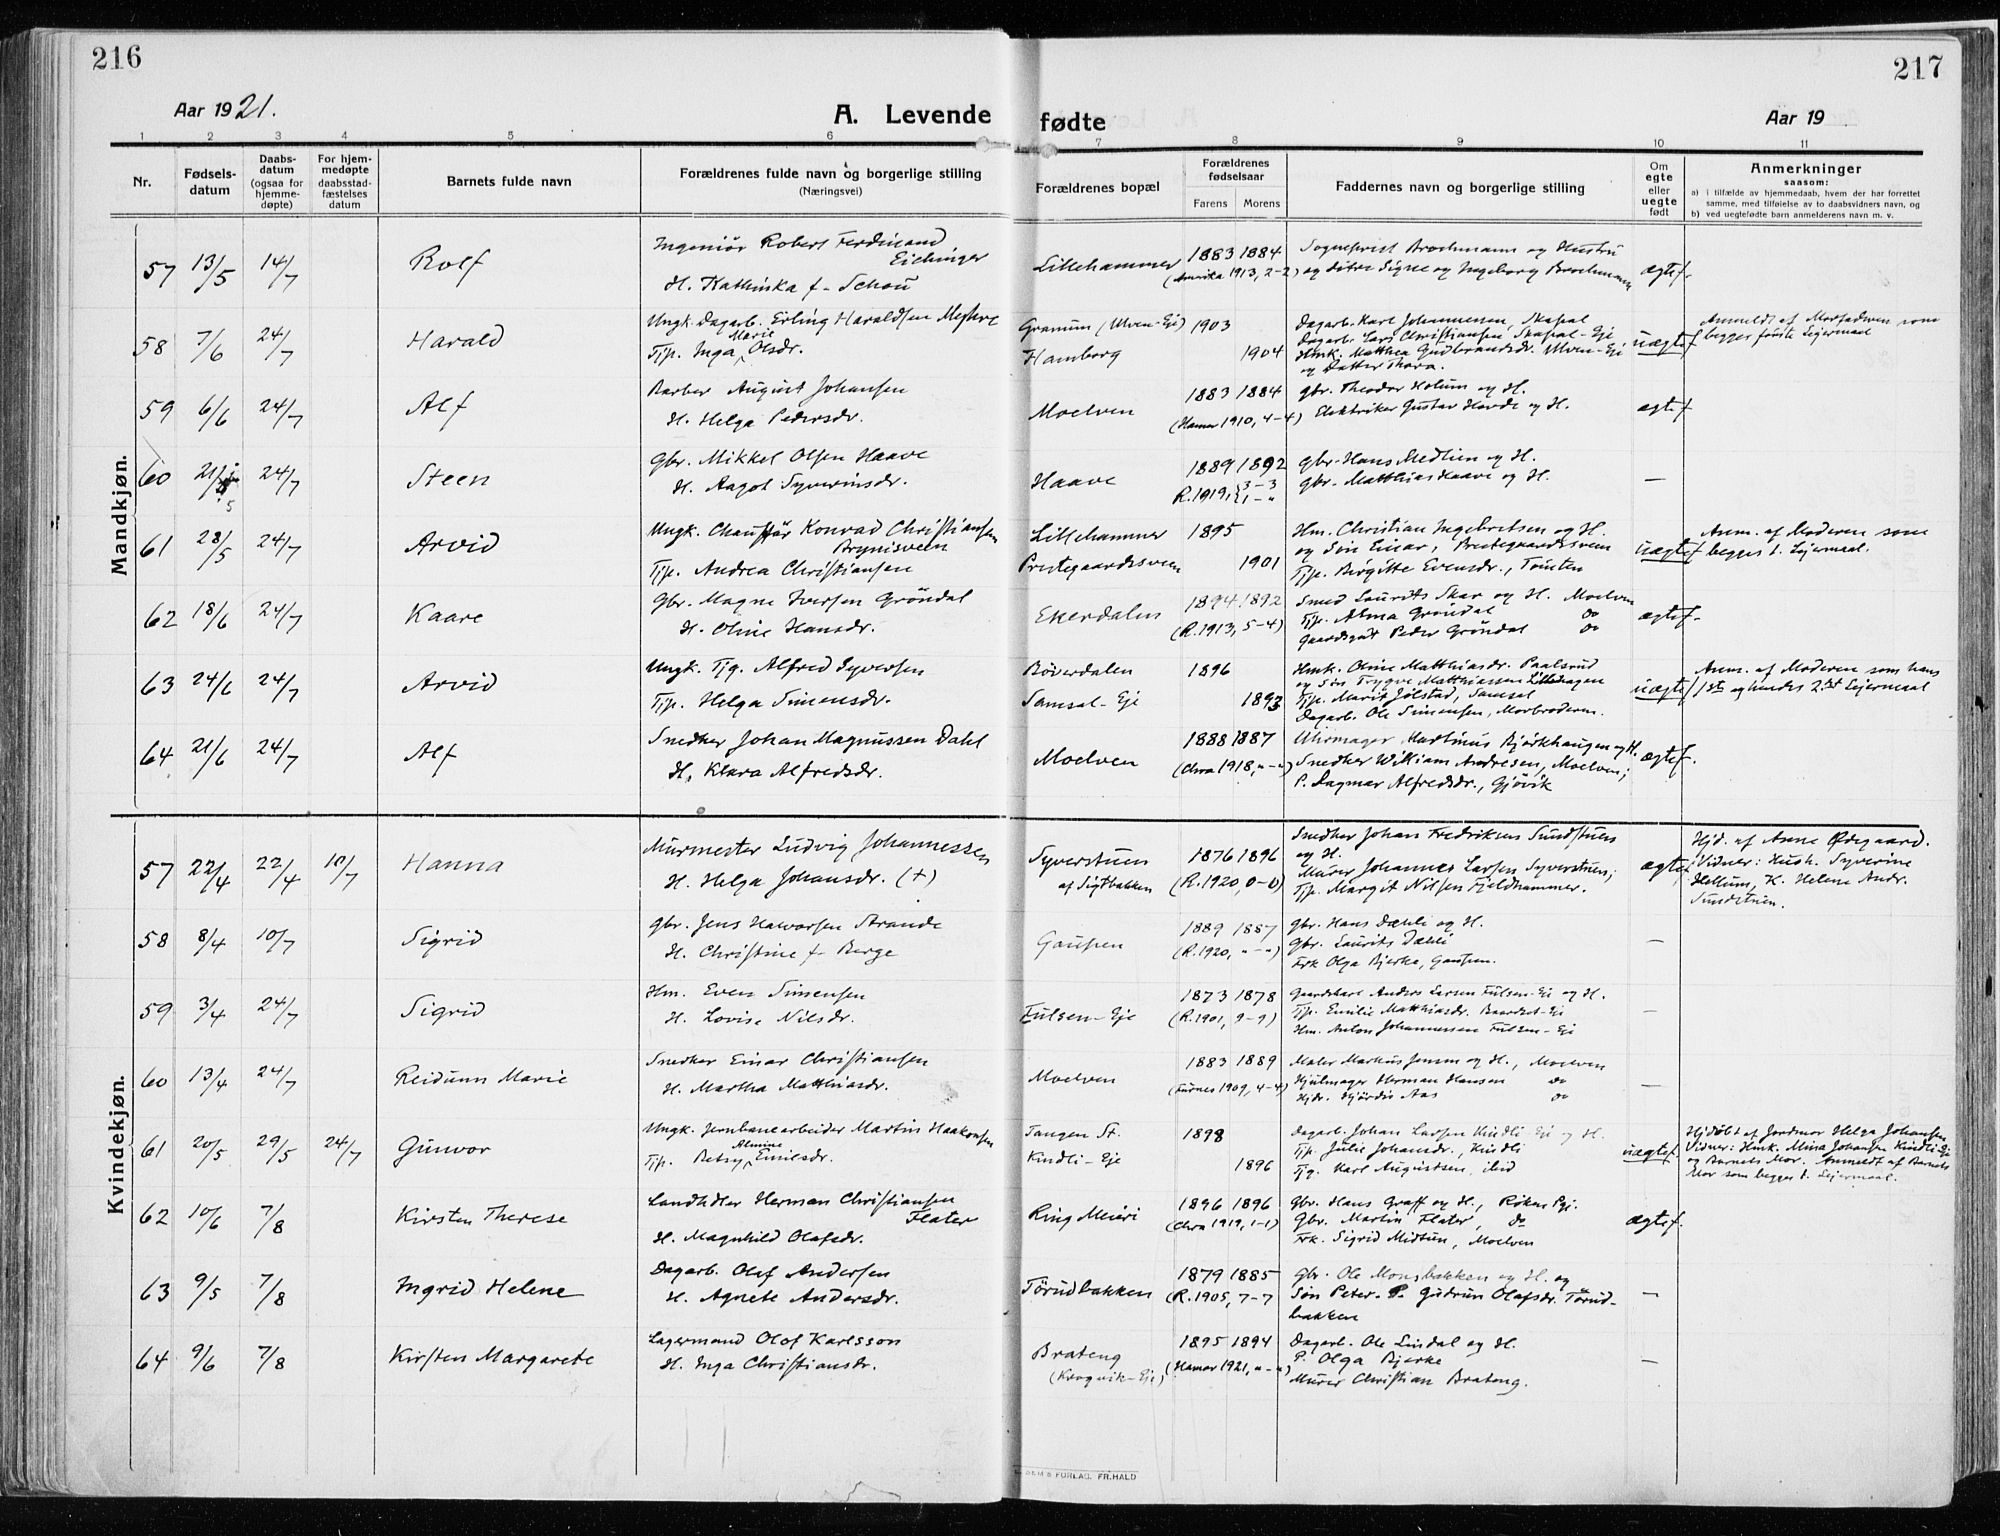 216
217
Aar 1921.
A. Levende fødte
Aar 19
1 2 3 4 5 6 7 8 9 10 11
Nr.
Fødsels-
datum
Daabs-
datum
(ogsaa for
hjemme-
døpte)
For hjem-
medøpte
daabsstad-
fæstelses
datum
Barnets fulde navn
Forældrenes fulde navn og borgerlige stilling
(Næringsvei)
Forældrenes bopæl
Forældrenes
fødselsaar
Farens Morens
Faddernes navn og borgerlige stilling
Om
egte
eller
uegte
født
Anmerkninger
saasom:
a) i tilfælde av hjemmedaab, hvem der har forrettet
samme, med tilføielse av to daabsvidners navn, og
b) ved uegtefødte barn anmelderens navn m. v.
Mandkjøn.
57 13/5 14/7 Rolf
Ingeniør Robert Ferdinand
Eichinger
H. Kathinka f. Schou
Lillehammer 1883 1884
(Amerika 1913, 2-2)
Sogneprest Brochmann og Hustru
og døtre Signe og Ingeborg Brochmann
ægtef.
58 7/6 24/7 Harald
Ungk. Dagarb. Erling Haraldsen Mestre
Tjp. Inga Marie Olsdr.
Granum (Ulven-Eje) 1903
Hamborg 1904
Dagarb. Karl Johannesen, Skapal
Dagarb. Lars Christiansen, Skapal-Eje
Hmk. Matthea Gudbrandsdr. Ulven-Eje
og Datter Thora.
uægtef
Anmeldt af Morfaderen som
begges første Lejermaal
59 6/6 24/7 Alf
Barber August Johansen
H. Helga Pedersdr.
Moelven 1883 1884
(Hamar 1910, 4-4)
gbr. Theodor Holum og H.
Elektriker Gustav Harde og H.
ægtef
60 21/5 24/7 Steen
Gbr. Mikkel Olsen Haave
H. Aagot Syverinsdr.
Haave 1889 1892
R. 1919, {3-3
{1-"
gbr. Hans Medlien og H.
gbr. Matthias Haave og H.
—
61 28/5 24/7 Arvid
Ungk. Chauffør Konrad Christiansen
Brynisveen
Tjp. Andrea Christiansen
Lillehammer 1895
Prestegaardsveen 1901
Hm. Christian Ingebretsen og H.
og Søn Einar, Prestegaardsveen
Tjp. Birgitte Evensdr., Tomten
uægtef
Anm. af Moderen som
begges 1. Lejermaal.
62 18/6 24/7 Kaare
Gbr. Magne Iversen Grøndal
H. Oline Hansdr.
Ekerdalen 1894 1892
(R. 1913, 5-4)
Smed Laurits Skar og H. Moelven
Tjp. Alma Grøndal do
Gaardsgut Peder Grøndal do
ægtef.
63 24/6 24/7 Arvid
Ungk. Tjg. Alfred Syversen
Tjp. Helga Simensdr.
Bøverdalen 1896
Samsal-Eje 1893
Hmk. Oline Matthiasdr. Paalsrud
og Søn Trygve Matthiassen Lillehagen
Tjp. Marit Jølstad, Samsal
Dagarb. Ole Simensen, Morbroderen.
uægtef
Anm. af Moderen som hans
1ste og hendes 2det Lejermaal
64 21/6 24/7 Alf
Snedker Johan Magnussen Dahl
H. Klara Alfredsdr.
Moelven 1888 1887
(Chra 1918, "-")
Uhrmager Martinus Bjørkhaugen og H.
Snedker William Andresen, Moelven;
P. Dagmar Alfredsdr., Gjøvik
ægtef.
Kvindekjøn.
57 22/4 22/4 10/7 Hanna
Murmester Ludvig Johannessen
H. Helga Johansdr. (+)
Syverstuen
af Sigtbakken
1876 1896
(R. 1920, 0-0)
Snedker Johan Fredriksen Sundstuen
og H.
Murer Johannes Larsen Syverstuen;
Tjp. Margit Nilsen Fjeldhammer.
ægtef.
Hjd. af Anne Ødegaard.
Vidner: Hush. Syverine
Hellum, K. Helene Andr.
Sundstuen.
58 8/4 10/7 Sigrid
gbr. Jens Halvorsen Strande
H. Christine f. Berge
Gaupen 1889 1887
(R. 1920, "-")
gbr. Hans Dæhli og H.
Gbr. Laurits Dæhli
Frk Olga Bjerke, Gaupen.
—
59 3/4 24/7 Sigrid
Hm. Even Simensen
H. Lovise Nilsdr.
Fulsen-Eje 1873 1878
(R. 1901, 9-9)
Gaardskarl Anders Larsen Fulsen-Eje og H.
Tjp. Emilie Matthiasdr. Baardset-Eje
Hm. Anton Johannessen Fulsen-Eje
—
60 13/4 24/7 Reidunn Marie
Snedker Einar Christiansen
H. Martha Matthiasdr.
Moelven 1883 1889
(Furnes 1909, 4-4)
Maler Markus Jensen og H., Moelven
Hjulmager Herman Hansen do
Hjdr. Hjørdis Aas do
—
61 20/5 29/5 24/7 Gunvor
Ungk. Jernbanearbeider Martin Haakonsen
Tjp. Betsy Almine Emilsdr.
Tangen St. 1898
Kindli-Eje 1896
Dagarb. Johan Larsen Kindli Eje og H.
Tjp. Julie Johansdr., Kindli
Tjg. Karl Augustsen, ibid
uægtef.
Hjdøbt af Jordmor Helga Johansen
Vidner: Hmk. Mina Johansen Kindli-Eje
og Barnets Mor. Anmeldt af Barnets
Mor som begges 1. Lejermaal.
62 10/6 7/8 Kirsten Therese
Landhdler Herman Christiansen
Flater
H. Magnhild Olafsdr.
Ring Meieri 1896 1896
(Chra 1919, 1-1)
Gbr. Hans Graff og H., Røkne Pgj.
Gbr. Martin Flater, do
Frk. Sigrid Midtun, Moelven
ægtef.
63 9/5 7/8 Ingrid Helene
Dagarb. Olaf Andersen
H. Agnete Andersdr.
Tørudbakken 1879 1885
(R. 1905, 7-7
Gbr. Ole Monsbakken og H. og
Søn Peter. P. Gudrun Olafsdr. Tørud-
bakken
—
64 9/6 7/8 Kirsten Margarete
Lagermand Olof Karlsson
H. Inga Christiansdr.
Brateng
(Krogvik-Eje)
1895 1894
(Hamar 1921, "-")
Dagarb. Ole Lindal og H.
P. Olga Bjerke
Murer Christian Brateng.
—
FORLAG. FR. HALD